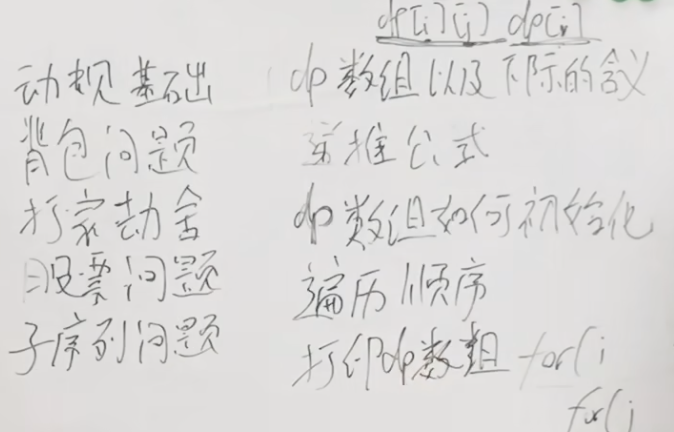 dp[i][j] dp[i]
动规基础
背包问题
打家劫舍
股票问题
子序列问题
dp数组以及下标的含义
递推公式
dp数组如何初始化
遍历顺序
打印dp数组 for(i
for(j